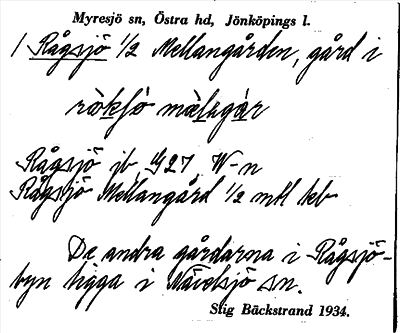 Myresjö sn, Östra hd, Jönköpings l.
1 Rågsjö 1/2 Mellangården, gård i
råksjö mälagár
Rågsjö jb, W-n
Rågsjö Mellangård 1/2 mtl teb
De andra gårdarna i Rågsjö-
byn ligga i Nävelsjö sn.
Stig Bäckstrand 1934.